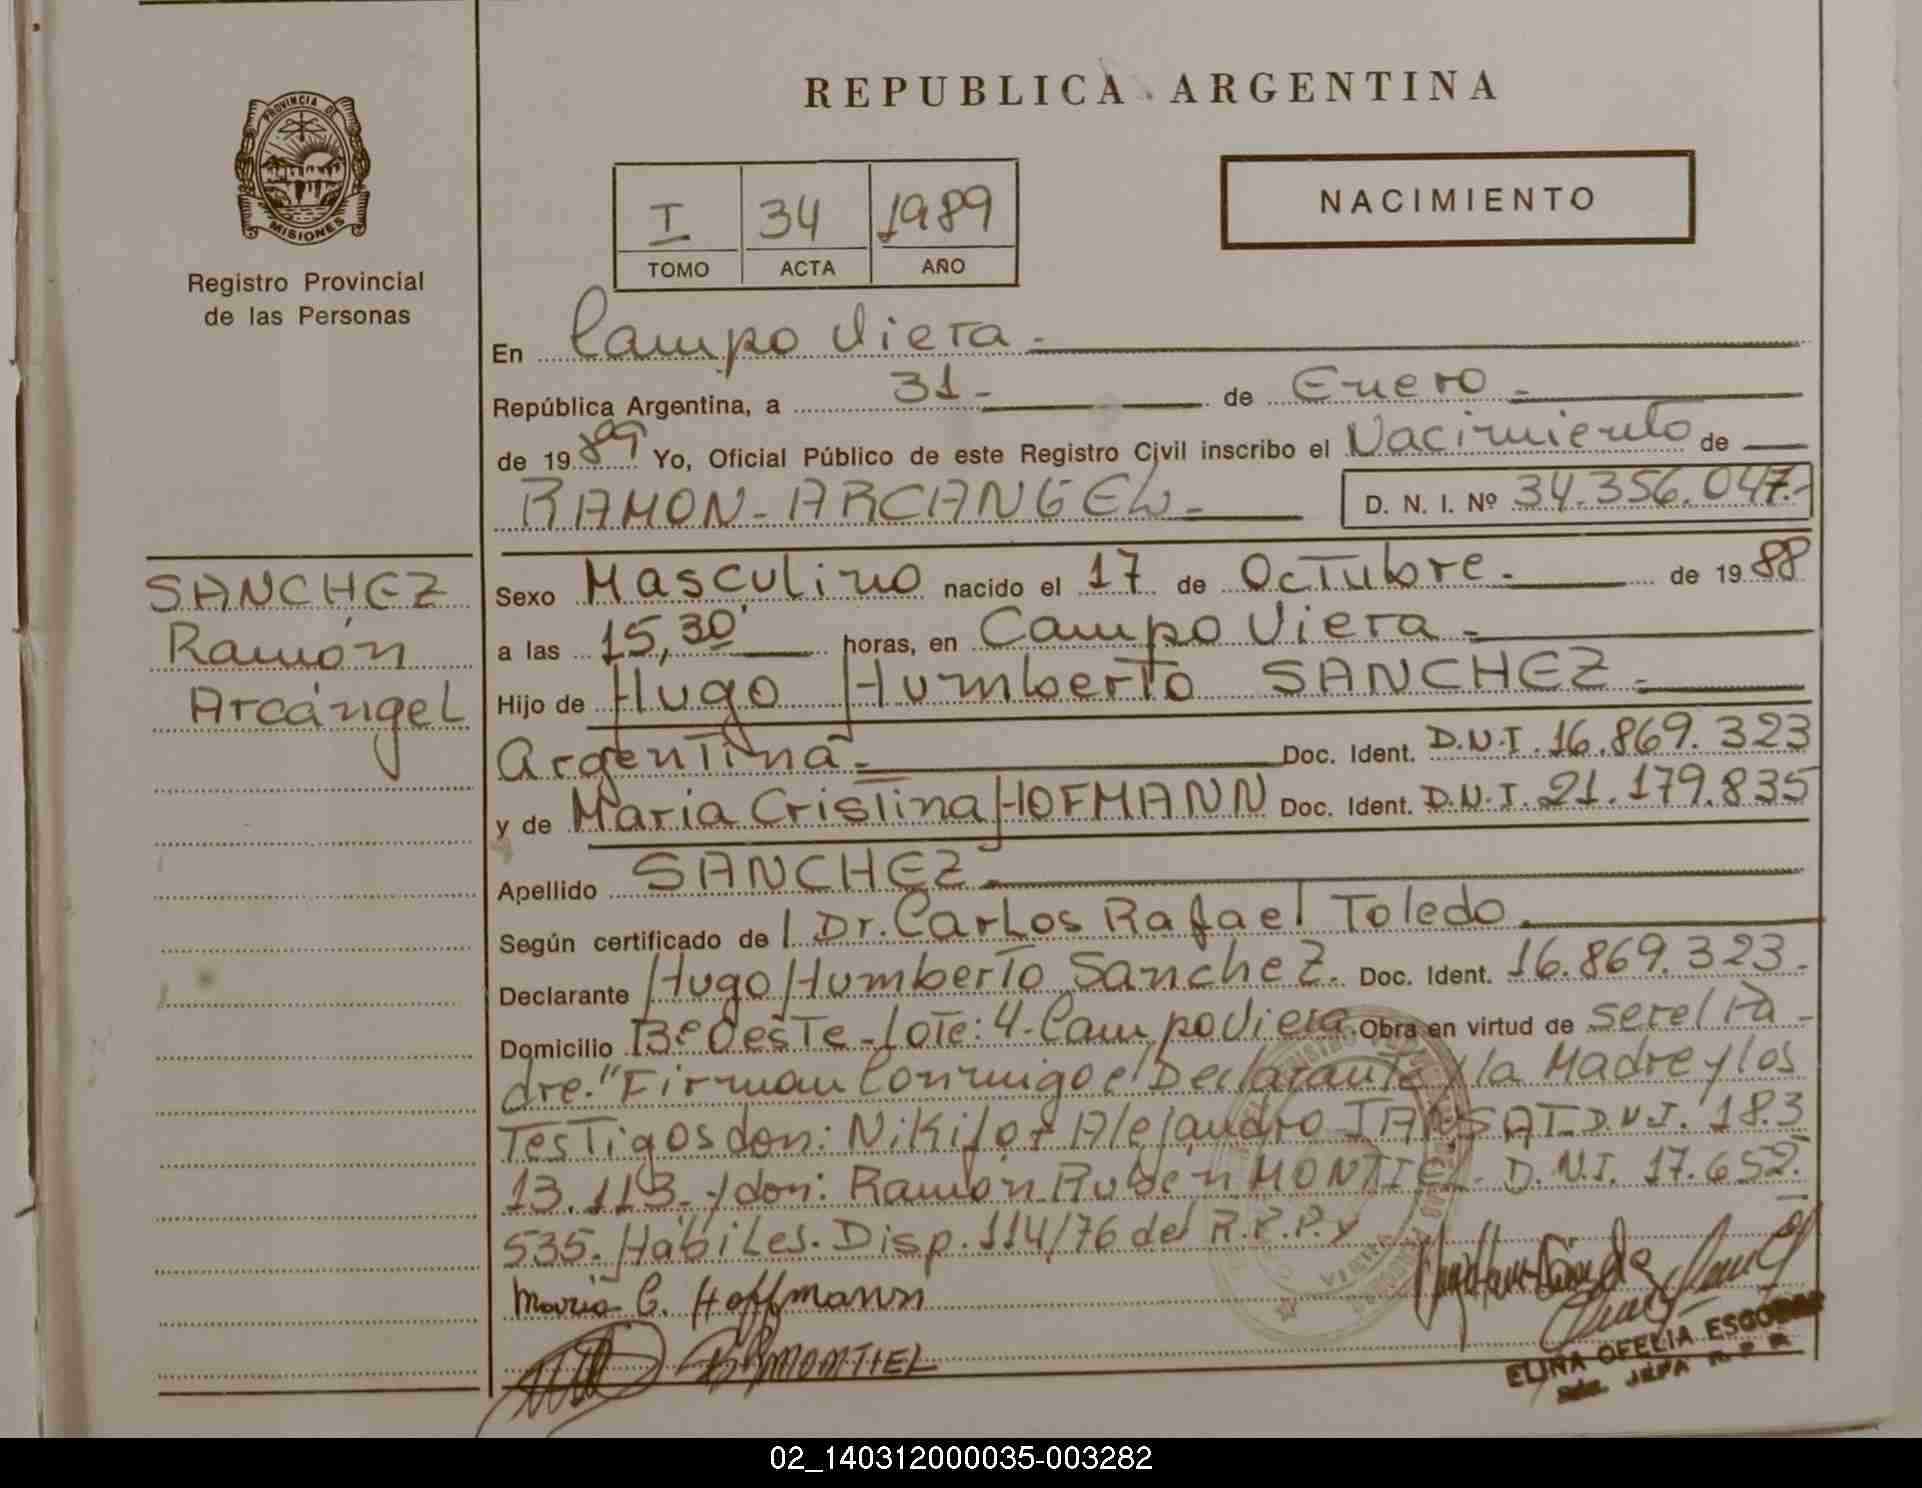 REPUBLICA ARGENTINA
PROVINCIA DE
MISIONES
Registro Provincial
de las Personas
NACIMIENTO
I 34 1989
TOMO ACTA AÑO
En Campo Viera.-
República Argentina, a 31.- de Enero.-
de 1989 Yo, Oficial Público de este Registro Civil inscribo el Nacimiento de
RAMON-ARCANGEL.- D. N. I. Nº 34.356.047.-
SANCHEZ
Ramón
Arcángel
Sexo Masculino nacido el 17 de Octubre.- de 1988
a las 15,30' horas, en Campo Viera.-
Hijo de Hugo Humberto SANCHEZ.-
Argentina.- Doc. Ident. D.N.I. 16.869.323
y de Maria Cristina HOFMANN Doc. Ident. D.N.I. 21.179.835
Apellido SANCHEZ.-
Según certificado de l Dr. Carlos Rafael Toledo.-
Declarante Hugo Humberto Sanchez. Doc. Ident. 16.869.323.-
Domicilio Bº Oeste-Lote: 4-Campo Viera. Obra en virtud de ser el Pa-
dre."Firman Conmigo el Declarante y la Madre y los
Testigos don: Nikifor Alejandro D.N.I. 18.3
13.113.-y don: Ramón Rubén MONTIEL- D.N.I. 17.652.
535. Hábiles. Disp. 114/76 del R.P.P. y
Maria C. Hoffmann
MONTIEL
ELINA OFELIA ESCOBAR
JEFA R P P
02_140312000035-003282